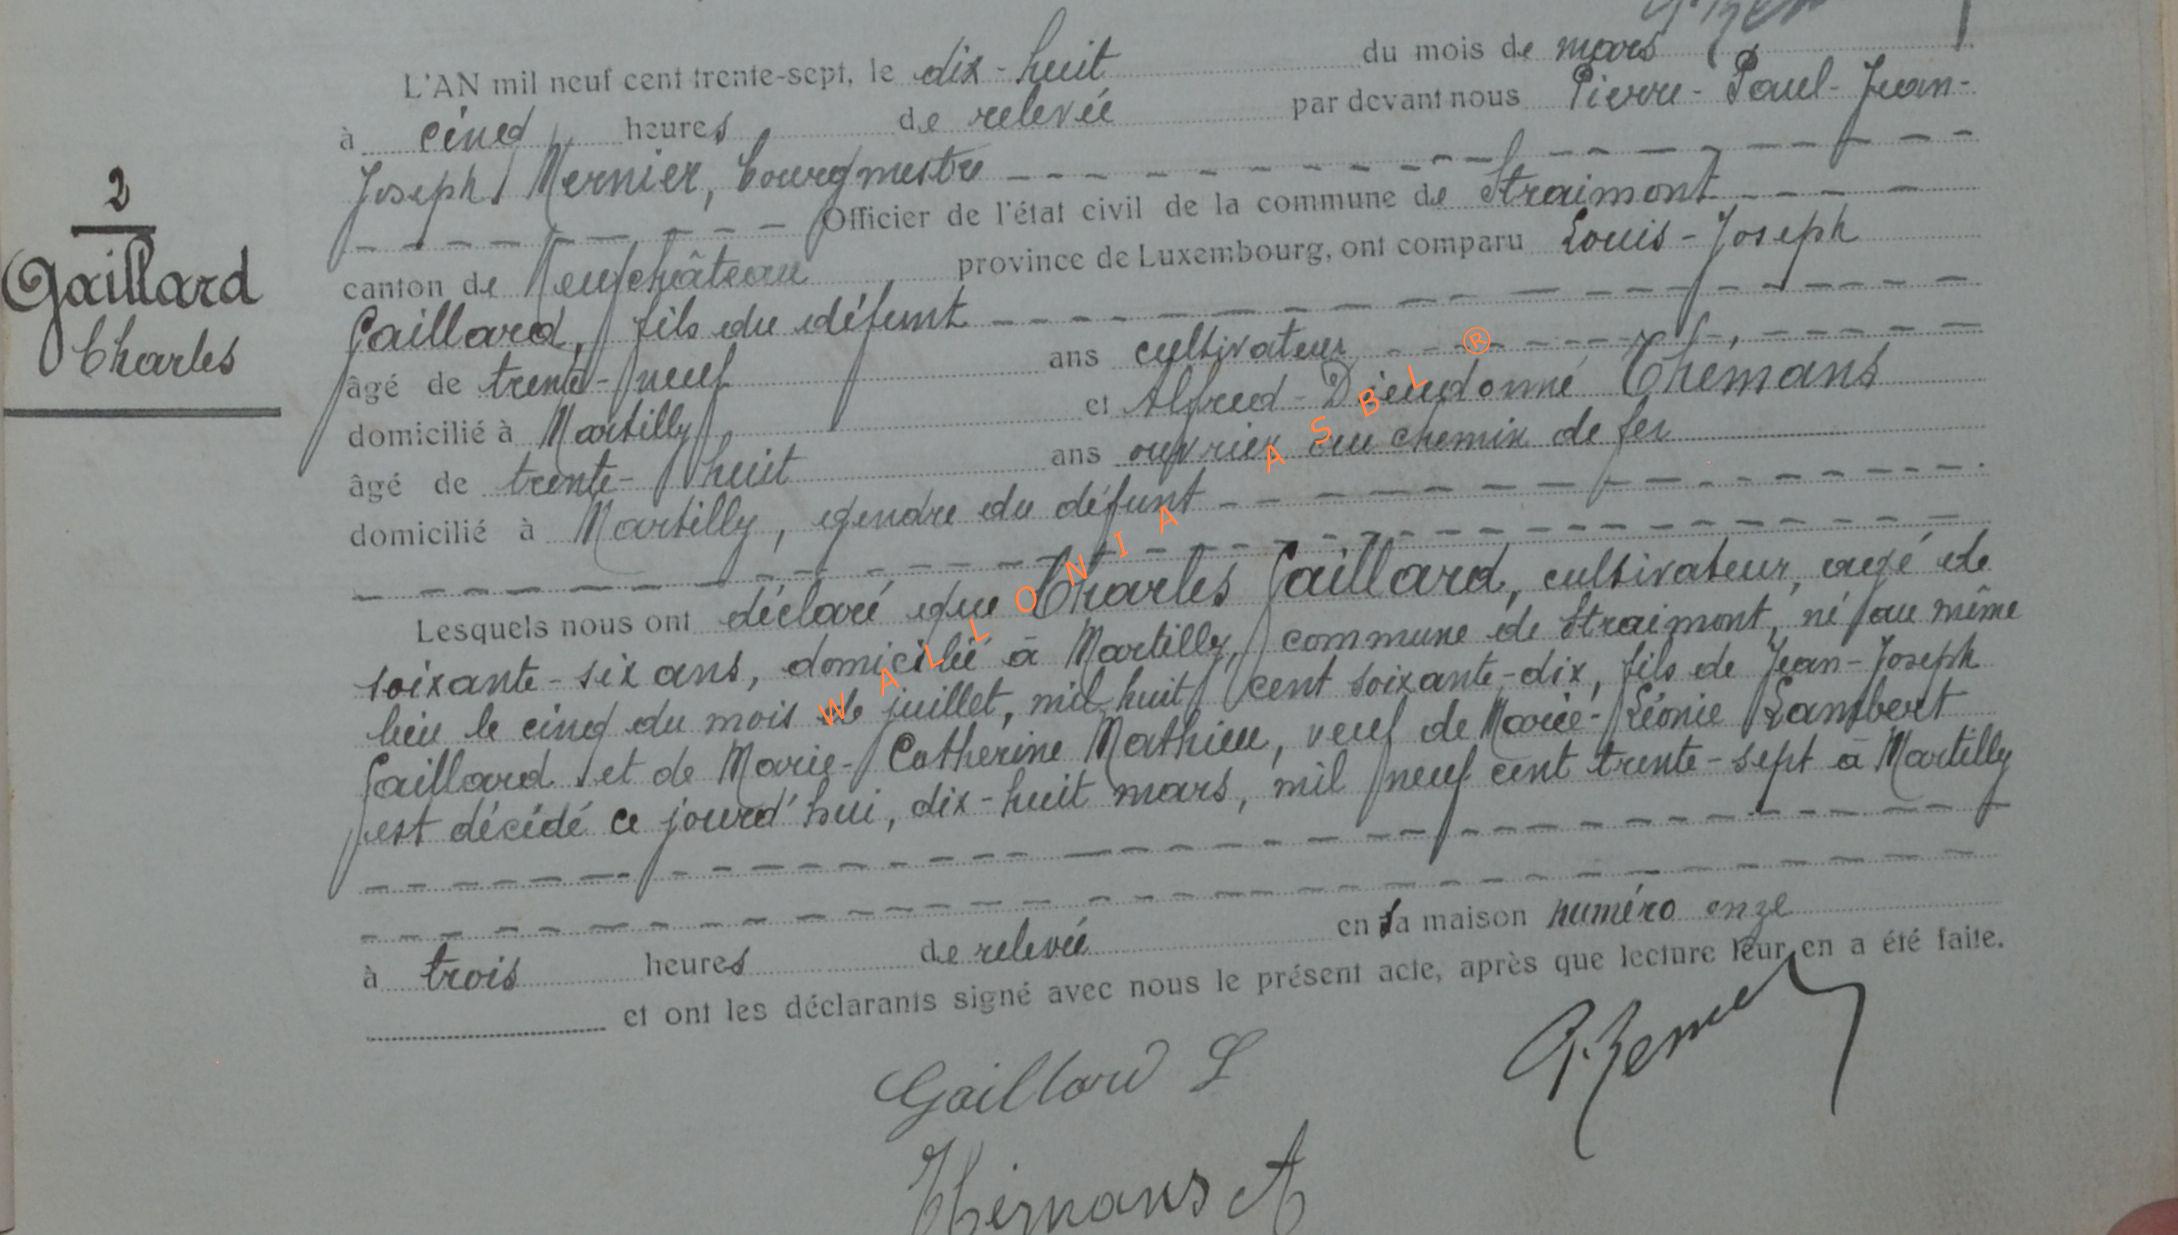 L'AN mil neuf cent trente-sept, le dix-huit du mois de mars
à cinq heures de relevée par devant nous Pierre-Paul-Jean-
Joseph Mernier, bourgmestre
Officier de l'état civil de la commune de Straimont
canton de Neufchâteau province de Luxembourg, ont comparu Louis-Joseph
Gaillard, fils du défunt
âgé de trente-neuf ans cultivateur
domicilié à Martilly et Alfred-Dieudonné Thémans
âgé de trente-huit ans ouvrier au chemin de fer
domicilié à Martilly, gendre du défunt
2
Gaillard
Charles
Lesquels nous ont déclaré que Charles Gaillard, cultivateur, agé de
soixante-six ans, domicilié à Martilly, commune de Straimont, né au même
lieu le cinq du mois de juillet, mil huit cent soixante-dix, fils de Jean-Joseph
Gaillard et de Marie-Catherine Mathieu, veuf de Marie-Léonie Lambert
est décédé ce jourd'hui, dix-huit mars, mil neuf cent trente-sept à Martilly
à trois heures de relevée en sa maison numéro onze
et ont les déclarants signé avec nous le présent acte, après que lecture leur en a été faite.
Gaillard L
Thémans A
WALLONIA ASBL ®